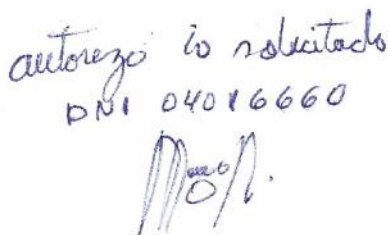 autorezo lo solicitado
DNI 04016660